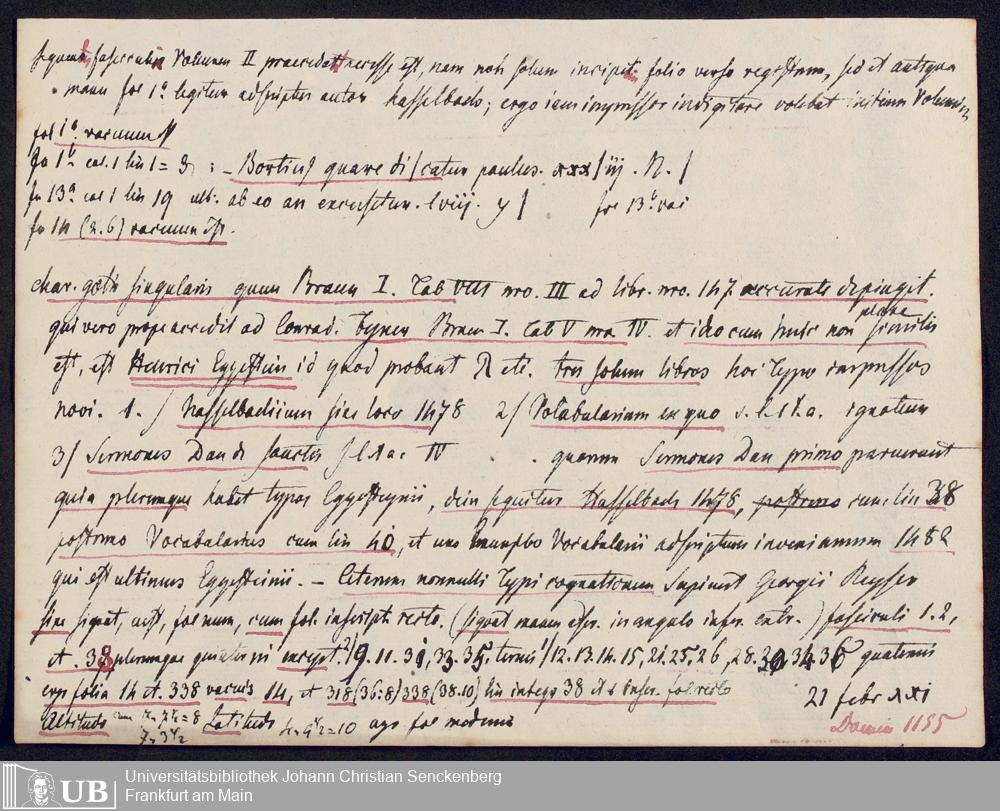 sequenti fasciculus Volumen II praecedat necesse est, nam non solum incipit folio verso registrum, sed et antiqua
manu fol 1a legitur adscriptus autor hasselbach; ergo iam impressor indigitare volebat initium Voluminis
fol 1a. vacuum est
fo 1b. col. 1 lin 1 = : - Boetius quare di/catur paulus. xxx/iij . N. /
fo 13a col 1 lin 19 ult: ab eo an excusetur. lviij. y / fol 13b. vac
fo 14 (2.6) vacuum est.
char. goth singularis quem Braun I. Tab VIII nro. III ad libr. nro. 147. accurate depingit.
qui vero prope accedit ad Conrad. Fyner Braun I. Tab V nro IV. et ideo cum huic non plane similis
est, est Henrici Eggestein id quod probant R etc. tres solum libros hoc typo impressos
novi. 1. / Hasselbachium sine loco 1478 2/ Vocabularium ex quo s. l. et a. ignotum
3/ Sermones Dan di sanctis s l et a. IV . . quorum Sermones Dan primo paruerunt
quia plerumque habet typos Eggesteynii, dein sequitur Hasselbach 1478, postremo cum lin 38
postremo Vocabularius cum lin 40, et uno exemplo Vocabularii adscriptum invenimus 1482
qui est ultimus Eggesteinii. - Ceterum nonnulli typi cognationem sapiunt Georgii Reyser
sine signat, cust, fol num, cum fol. inscript. recto. (signat manu adscr. in angulo infer. extr.) fasciculi 1. 2,
et . 38 plerumque quinterni except. 2) 9. 11. 31, 33. 35, ternis 1) 12. 13. 14. 15, 21. 25, 26, 28. 30 34 36 quaternis
ergo folia 14 et. 338 vacuis 14, et 318 (36.8) 338 (38.10) lin integr 38 et infer. fol recto
Altitudo 7 3 1/2 Latitudo = 10 ergo fol medium
21 febr xxi
1155
Universitätsbibliothek Johann Christian Senckenberg
UB
Frankfurt am Main